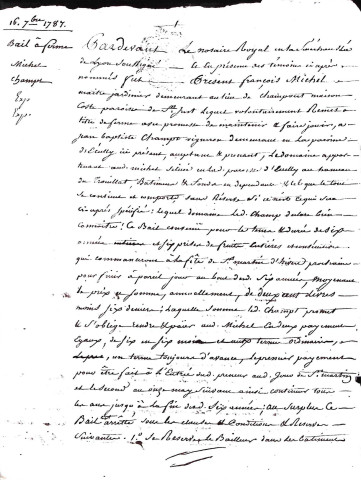 16. 7bre 1787.
Bail à ferme
Michel
Champt
Exp
Exp
Pardevant Le notaire Royal en la Senechaussée
de Lyon Soussigné et en présence des témoins cy après
nommés fut Present françois Michel
maitre jardinier demeurant au lieu de Champvert maison
Coste paroisse de St just Lequel volontairement Remet à
titre de ferme avec promesse de maintenir & faire jouir, à
jean baptiste Champt vigneron demeurant en La paroisse
d'Ecully icy present, acceptant & prenant, Le domaine appar-
tenant aud. michel scitué en lad. paroisse d'Ecully au hameau
de Trouillat, Batiments & fonds en dependants & tel que le tout
se contient et comporte sans Réserve si ce n'est ce qui sera
cy après spécifié; lequel domaine led. Champt a dit très bien
Connoitre; Ce Bail consenti pour le terme & durée de Six
années et six prises de fruits entières & consécutives
qui commenceront à la fête de St martin d'hiver prochaine
pour finir à pareil jour au bout desd. Six années, Moyennant
le prix et somme, annuellement, de deux cent livres
moins six deniers; laquelle somme led. Champt promet
& s'oblige rendre & payer aud. Michel en deux payements
Egaux, de six en six mois et aux termes ordinaires,
un terme toujours d'avance, le premier payement
pour être fait à l'Entrée dud. preneur aud. jour de St martin
et le second au onze may suivant ainsi continuer tous
les ans jusqu'à la fin desd. Six années; Au Surplus Ce
Bail arrêté sous les clauses & Conditions & Réserves
Suivantes. 1° Se Reserve Le Bailleur dans les Batiments